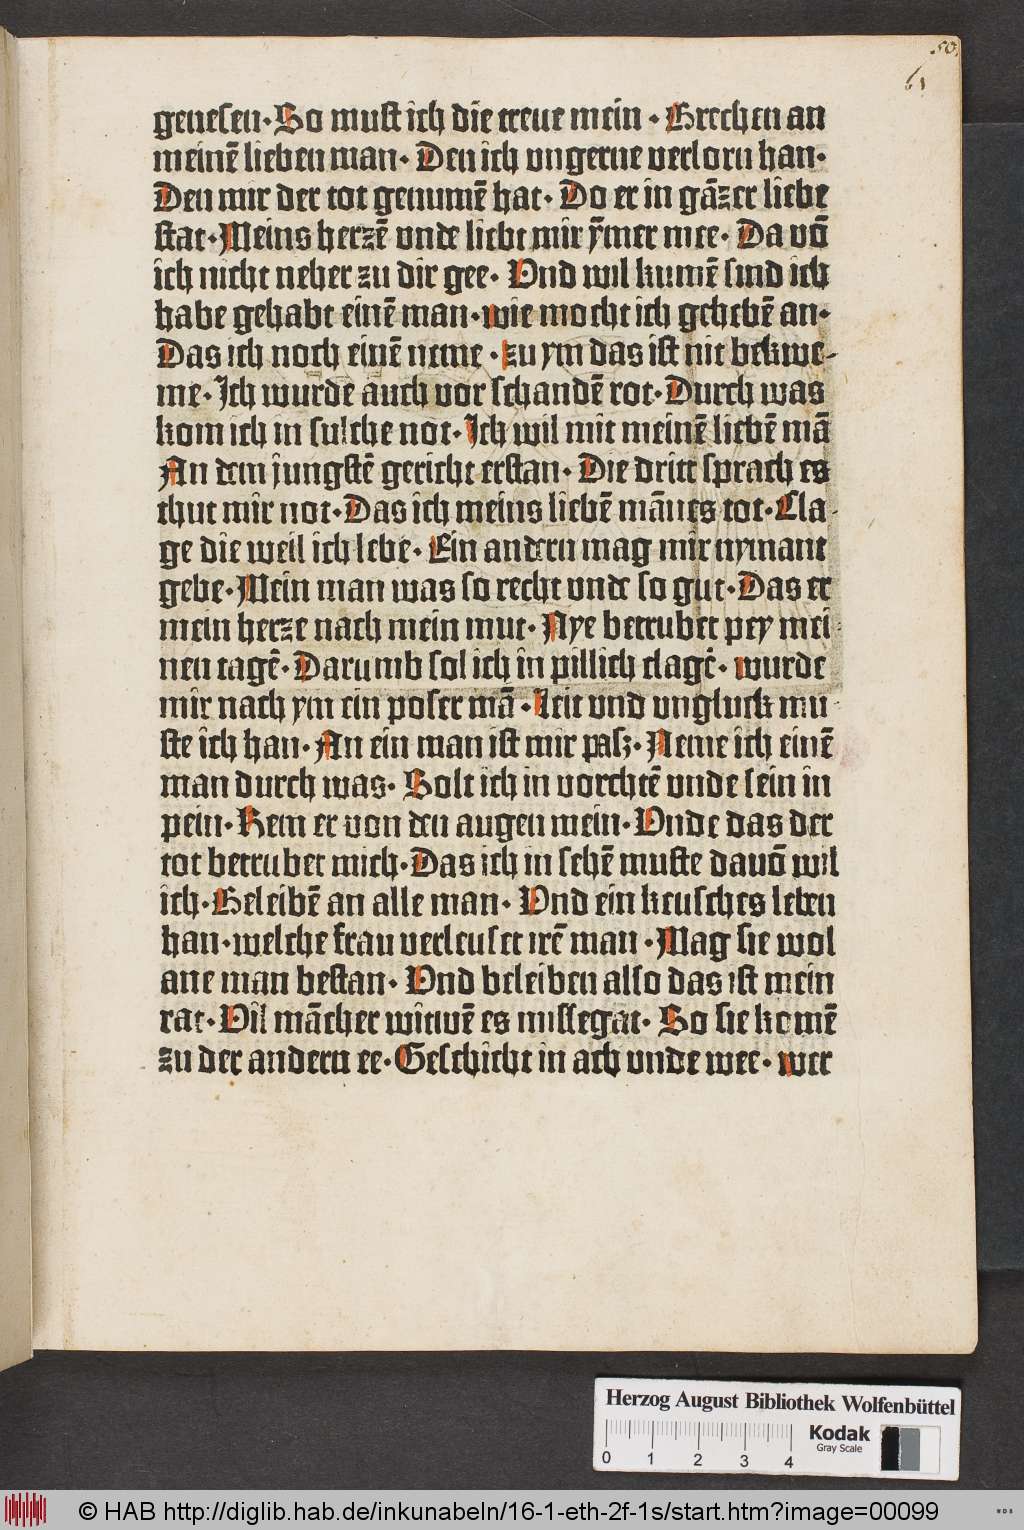 50
61
geneſen·So muſt ich die treue mein·Brechen an
meinē lieben man·Den ich vngerne verlorn han·
Den mir der tot genumē hat·Do er in gāzer liebe
ſtat·Meins herzē vnde liebt mir ÿmer mee·Da vō
ich nicht neher zu dir gee·Vnd wil kumē ſind ich
habe gehabt einē man·wie mocht ich gehebē an·
Das ich noch einē neme·zu ym das iſt nit bekwe-
me·Ich wurde auch vor ſchandē rot·Durch was
kom ich in ſulche not·Ich wil mit meinē liebē mā
An dem jungſtē gericht erſtan·Die dritt ſprach es
thut mir not·Das ich meins liebē mānes tot·Cla-
ge die weil ich lebe·Ein andern mag mir nymant
gebe·Mein man was ſo recht vnde ſo gut·Das er
mein herze nach mein mut·Nye betrubet pey mei
nen tagē·Darumb ſol ich in pillich clagē·wurde
mir nach ym ein poſer mā·Leit vnd vngluck mu-
ſte ich han·An ein man iſt mir paſz·Neme ich einē
man durch was·Solt ich in vorchtē vnde ſein in
pein·Kem er von den augen mein·Vnde das der
tot betrubet mich·Das ich in ſehē muſte davō wil
ich·Beleibē an alle man·Vnd ein keuſches leben
han·welche frau verleuſet irē man·Mag ſie wol
ane man beſtan·Vnd beleiben alſo das iſt mein
rat·Vil mācher witwē es miſſegat·So ſie komē
zu der andern ee·Geſchicht in ach vnde wee·wer
Herzog August Bibliothek Wolfenbüttel
Kodak
Gray Scale
0 1 2 3 4
© HAB http://diglib.hab.de/inkunabeln/16-1-eth-2f-1s/start.htm?image=00099